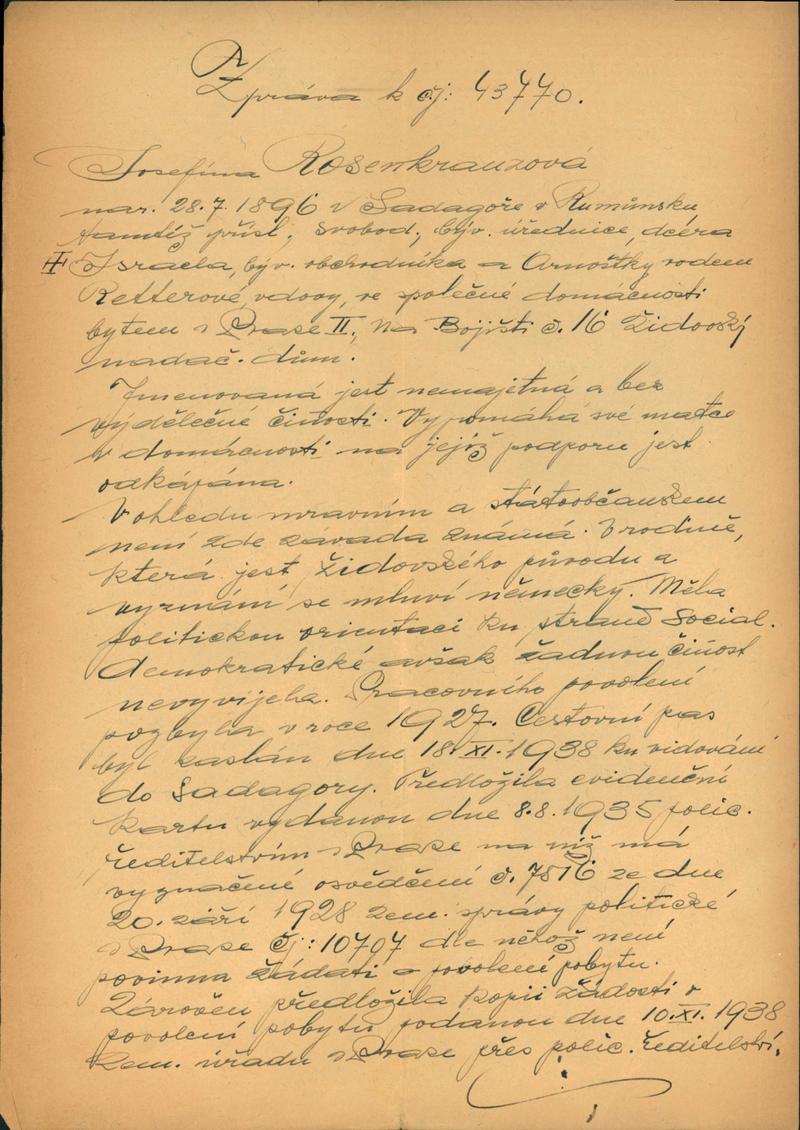 Zpráva k čj: 43770.
Josefina Rosenkranzová
nar. 28.7.1896 v Sadagoře v Rumunsku
tamtéž přísl., svobod., býv. úřednice, dcéra
Israela, býv. obchodníka a Arnoštky rodem
Retterové, vdovy, ve společné domácnosti
bytem v Praze II., Na Bojišti č. 16 Židovský
nadač. dům.
Jmenovaná jest nemajetná a bez
výdělečné činosti. Vypomáhá své matce
v domácnosti na jejíž podporu jest
odkázána.
V ohledu mravním a státoobčanském
není zde závada známá. V rodině,
která jest židovského původu a
vyznání se mluví německy. Měla
politickou orientaci ku straně Social.
demokratické avšak žádnou činost
nevyvíjela. Pracovního povolení
pozbyla v roce 1927. Cestovní pas
byl zaslán dne 18.XI.1938 ku vidování
do Sadagory. Předložila evidenční
kartu vydanou dne 8.8.1935 polic.
ředitelstvím v Praze na níž má
vyznačené osvědčení č. 7516 ze dne
20. září 1928 zem. správy politické
v Praze čj: 10707 dle něhož není
povinna žádati o povolení pobytu.
Zároveň předložila kopii žádosti v
povolení pobytu podanou dne 10.XI.1938
Zem. úřadu v Praze přes polic. ředitelství.